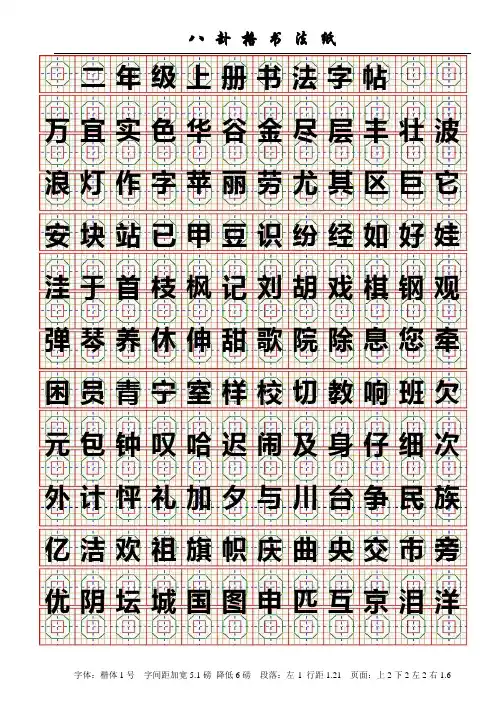 八卦格书法纸
二年级上册书法字帖
万宜实色华谷金尽层丰壮波
浪灯作字苹丽劳尤其区巨它
安块站已甲豆识纷经如好娃
洼于首枝枫记刘胡戏棋钢观
弹琴养休伸甜歌院除息您牵
困员青宁室样校切教响班欠
元包钟叹哈迟闹及身仔细次
外计怦礼加夕与川台争民族
亿洁欢祖旗帜庆曲央交市旁
优阴坛城国图申匹互京泪洋
字体：楷体1号 字间距加宽5.1磅 降低6磅 段落：左 1 行距1.21 页面：上2下2左2右1.6